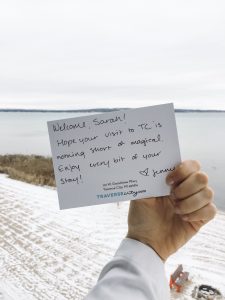 Welcome, Sarah!
Hope your visit to TC is
nothing short of magical.
Enjoy every bit of your
stay!
♡ Jenny
Traverse City, MI 49684
TRAVERSEcity.com